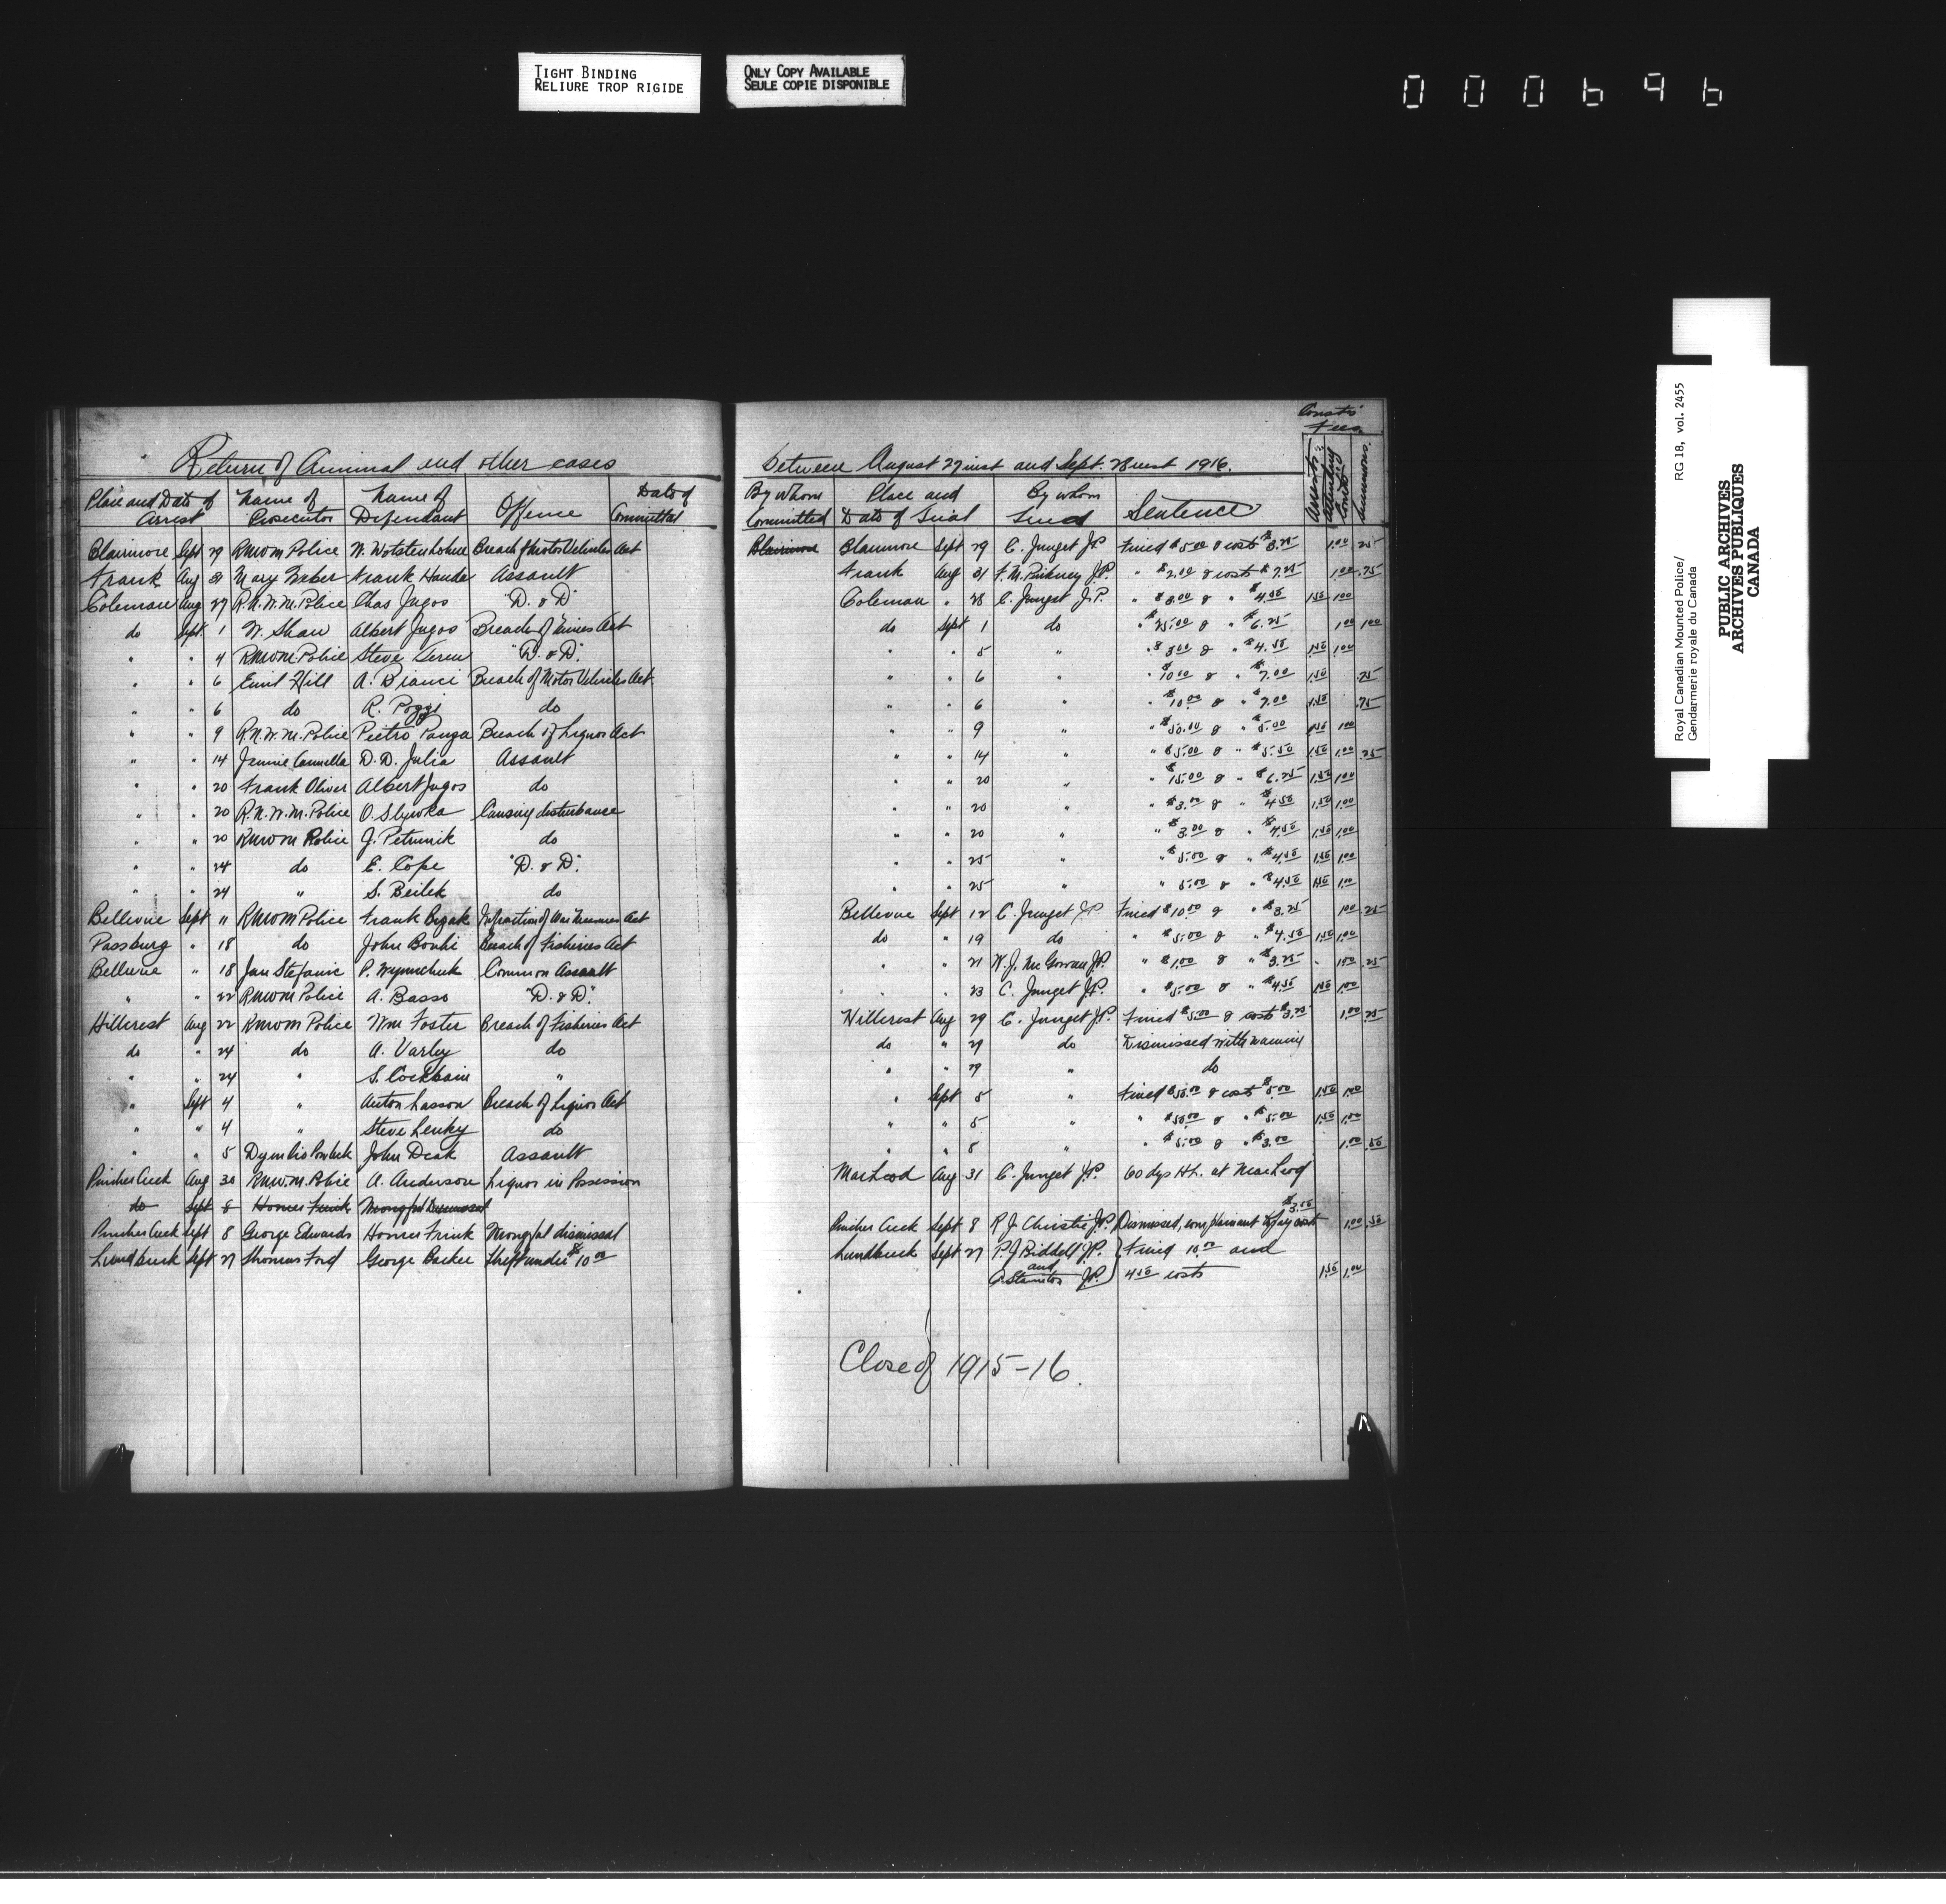 TIGHT BINDING
RELIURE TROP RIGIDE
ONLY COPY AVAILABLE
SEULE COPIE DISPONIBLE
000696
Royal Canadian Mounted Police/ RG 18, vol. 2455
Gendarmerie royale du Canada
PUBLIC ARCHIVES
ARCHIVES PUBLIQUES
CANADA
Return of Criminal and other cases between August 27 inst and Sept. 28 inst 1916.
Const's Fees
Place and Date of Arrest Name of Prosecutor Name of Defendant Offence Date of Committal By whom Committed Place and Date of Trial By whom Tried Sentence Arrests Attending Court Summons.
Blairmore Sept 29 RNWM Police W. Wolstenholme Breach of Motor Vehicles Act Blairmore Blairmore Sept 29 C. Junget JP Fined $5.00 & costs $3.25 1.00 .25
Frank Aug 31 Mary Weber Frank Handa Assault Frank Aug 31 F. M. Pinkney J.P. " $2.00 & costs $7.25 1.00 .75
Coleman Aug 27 R.N.W.M. Police Chas Jugos "D. & D" Coleman " 28 C. Junget J.P. " $3.00 & " $4.50 1.50 1.00
do Sept. 1 W. Shaw Albert Jugos Breach of Mines Act do Sept 1 do " $25.00 & " $6.25 1.00 1.00
" " 4 RNWM. Police Steve "D. & D". " " 5 " " $3.00 & " $4.50 1.50 1.00
" " 6 Emil Hill A. Bianci Breach of Motor Vehicles Act. " " 6 " " $10.00 & " $7.00 1.50 .75
" " 6 do R. Pozzi do " " 6 " " $10.00 & " $7.00 1.50 .75
" " 9 R.N.W.M. Police Pietro Panza Breach of Liquor Act " " 9 " " $50.00 & " $5.00 1.50 1.00
" " 14 Jennie Cannella D. D. Julia Assault " " 14 " " $5.00 & " $5.50 1.50 1.00 .25
" " 20 Frank Oliver Albert Jugos do " " 20 " " $15.00 & " $6.25 1.50 1.00
" " 20 R.N.W.M. Police O. Slywka Causing disturbance " " 20 " " $3.00 & " $4.50 1.50 1.00
" " 20 RNWM Police J. Petrunik do " " 20 " " $3.00 & " $4.50 1.50 1.00
" " 24 do E. Cope "D. & D". " " 25 " " $5.00 & " $4.50 1.50 1.00
" " 24 " S. Beilek do " " 25 " " 5.00 & " $4.50 1.50 1.00
Bellevue Sept 11 RNWM Police Frank Infraction of War Measures Act Bellevue Sept 12 C. Junget J.P. Fined $10.00 & " $3.25 1.00 .25
Passburg " 18 do John Bonhi Breach of Fisheries Act do " 19 do " $5.00 & " $4.50 1.50 1.00
Bellevue " 18 Jan Stefanic P. Common Assault " " 21 W. J. McGowan J.P. " $1.00 & " $3.25 " 1.00 .25
" " 22 RNWM Police A. Basso "D. & D". " " 23 C. Junget J.P. " $5.00 & " $4.50 1.50 1.00
Hillcrest Aug 22 RNWM Police Wm Foster Breach of Fisheries Act Hillcrest Aug 29 C. Junget J.P. Fined $5.00 & costs $3.25 1.00 .25
do " 24 do A. Varley do do " 29 do Dismissed with warning
" " 24 " S. Cockbain " " " 29 " do
" Sept 4 " Anton Lasson Breach of Liquor Act " Sept 5 " Fined $50.00 & costs $5.00 1.50 1.00
" " 4 " Steve Lenky do " " 5 " " $50.00 & " $5.00 1.50 1.00
" " 5 John Deak Assault " " 8 " " $5.00 & " $3.00 1.00 .50
Pincher Creek Aug 30 RNW.M. Police A. Anderson Liquor in Possession MacLeod Aug 31 C. Junget J.P. 60 dys H.L. at MacLeod
do Sept 8 Homer Frink Wrongful Dismissal
Pincher Creek Sept 8 George Edwards Homer Frink Wrongful dismissal Pincher Creek Sept 8 R J Christie J.P. Dismissed, complainant to pay costs $3.50 1.00 .50
Lundbreck Sept 27 Thomas Ford George Barker Theft under $10.00 Lundbreck Sept 27 P. J Biddell J.P. and Stainton J.P. Fined 10.00 and
4.50 costs 1.50 1.00
Close of 1915-16.